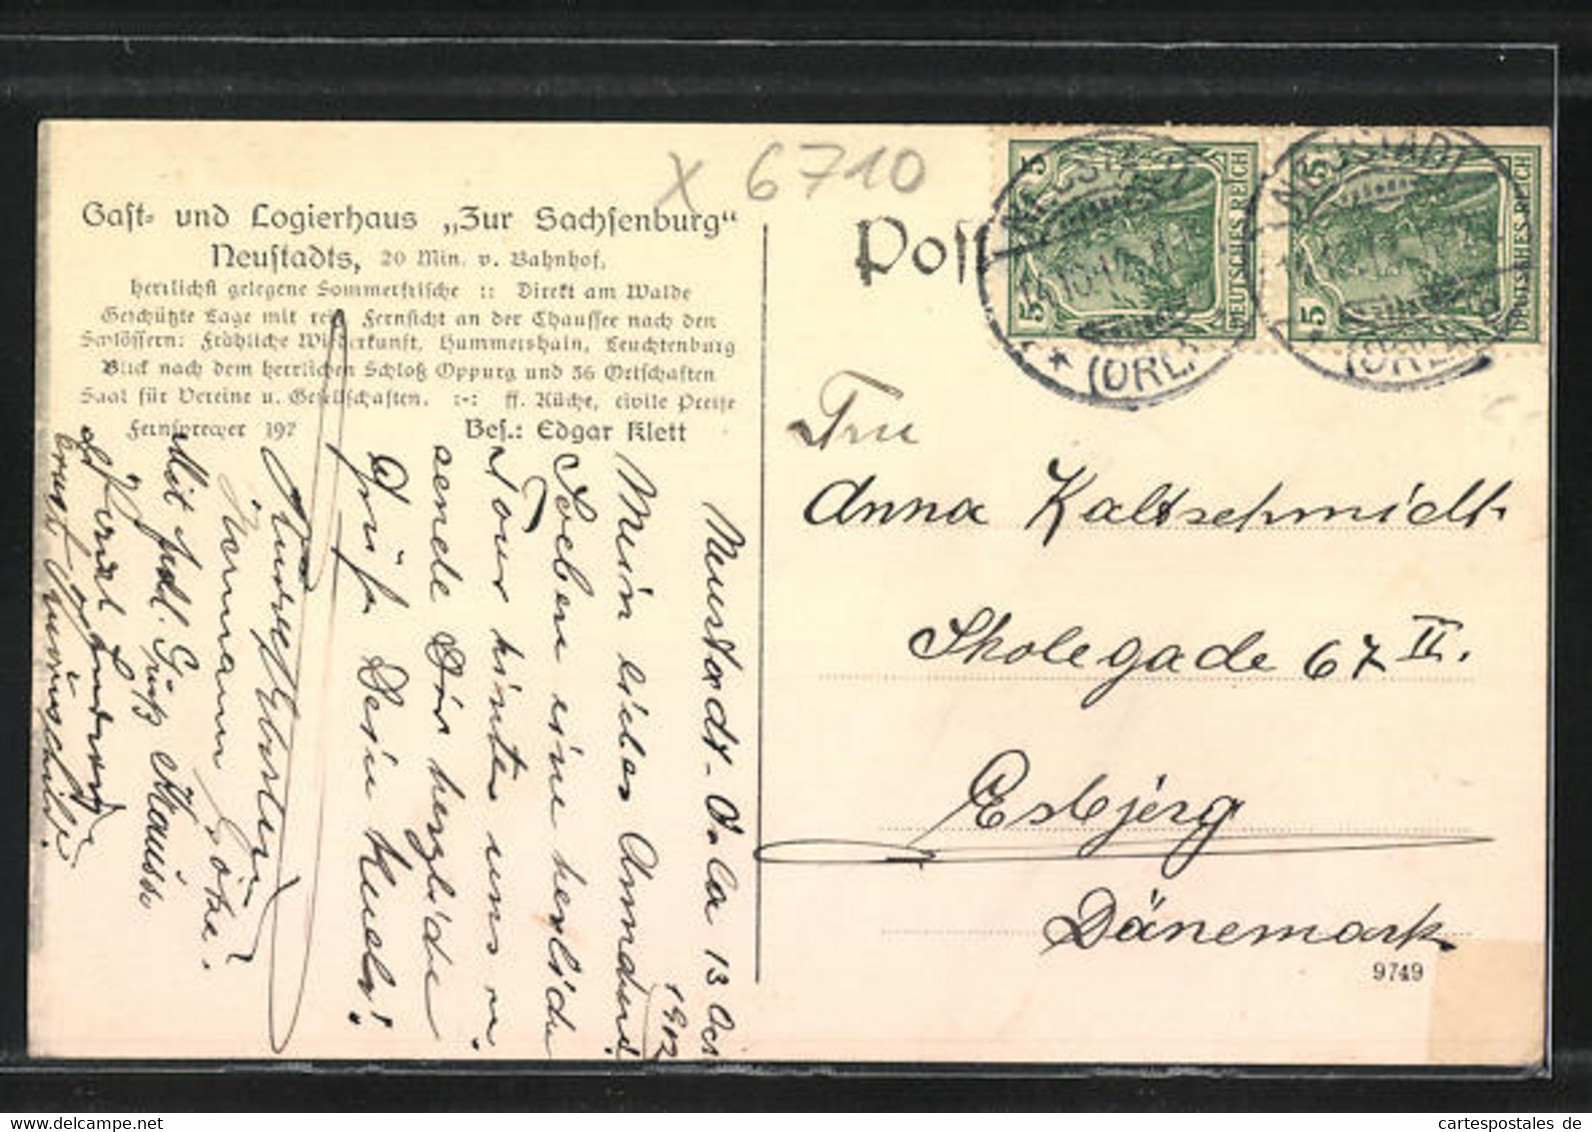 X 6710
Gast- und Logierhaus „Zur Sachsenburg“
Neustadts, 20 Min. v. Bahnhof,
herrlichst gelegene Sommerfrische :: Direkt am Walde
Geschützte Lage mit Fernsicht an der Chaussee nach den
Schlössern: Fröhliche Wiederkunft, Hummershain, Leuchtenburg
Blick nach dem herrlichen Schloß Oppurg und 36 Ortschaften
Saal für Vereine u. Gesellschaften. :-: ff. Küche, civile Preise
Fernsprecher 197
Bes.: Edgar Klett
Post
5 5
DEUTSCHES REICH
5 5
DEUTSCHES REICH
NEUSTADT
(ORLA)
NEUSTADT
(ORLA)
Anna Kaltschmidt
Skolegade 67 II.
Esbjerg
Dänemark
9749
Neustadt-Orla 13 Oct
1912
Mein liebes
Soeben eine herrliche
Tour hinter uns
sende Dir herzliche
Grüße Dein
Hermann Göthe.
Mit frdl. Gruß
cartespostales de